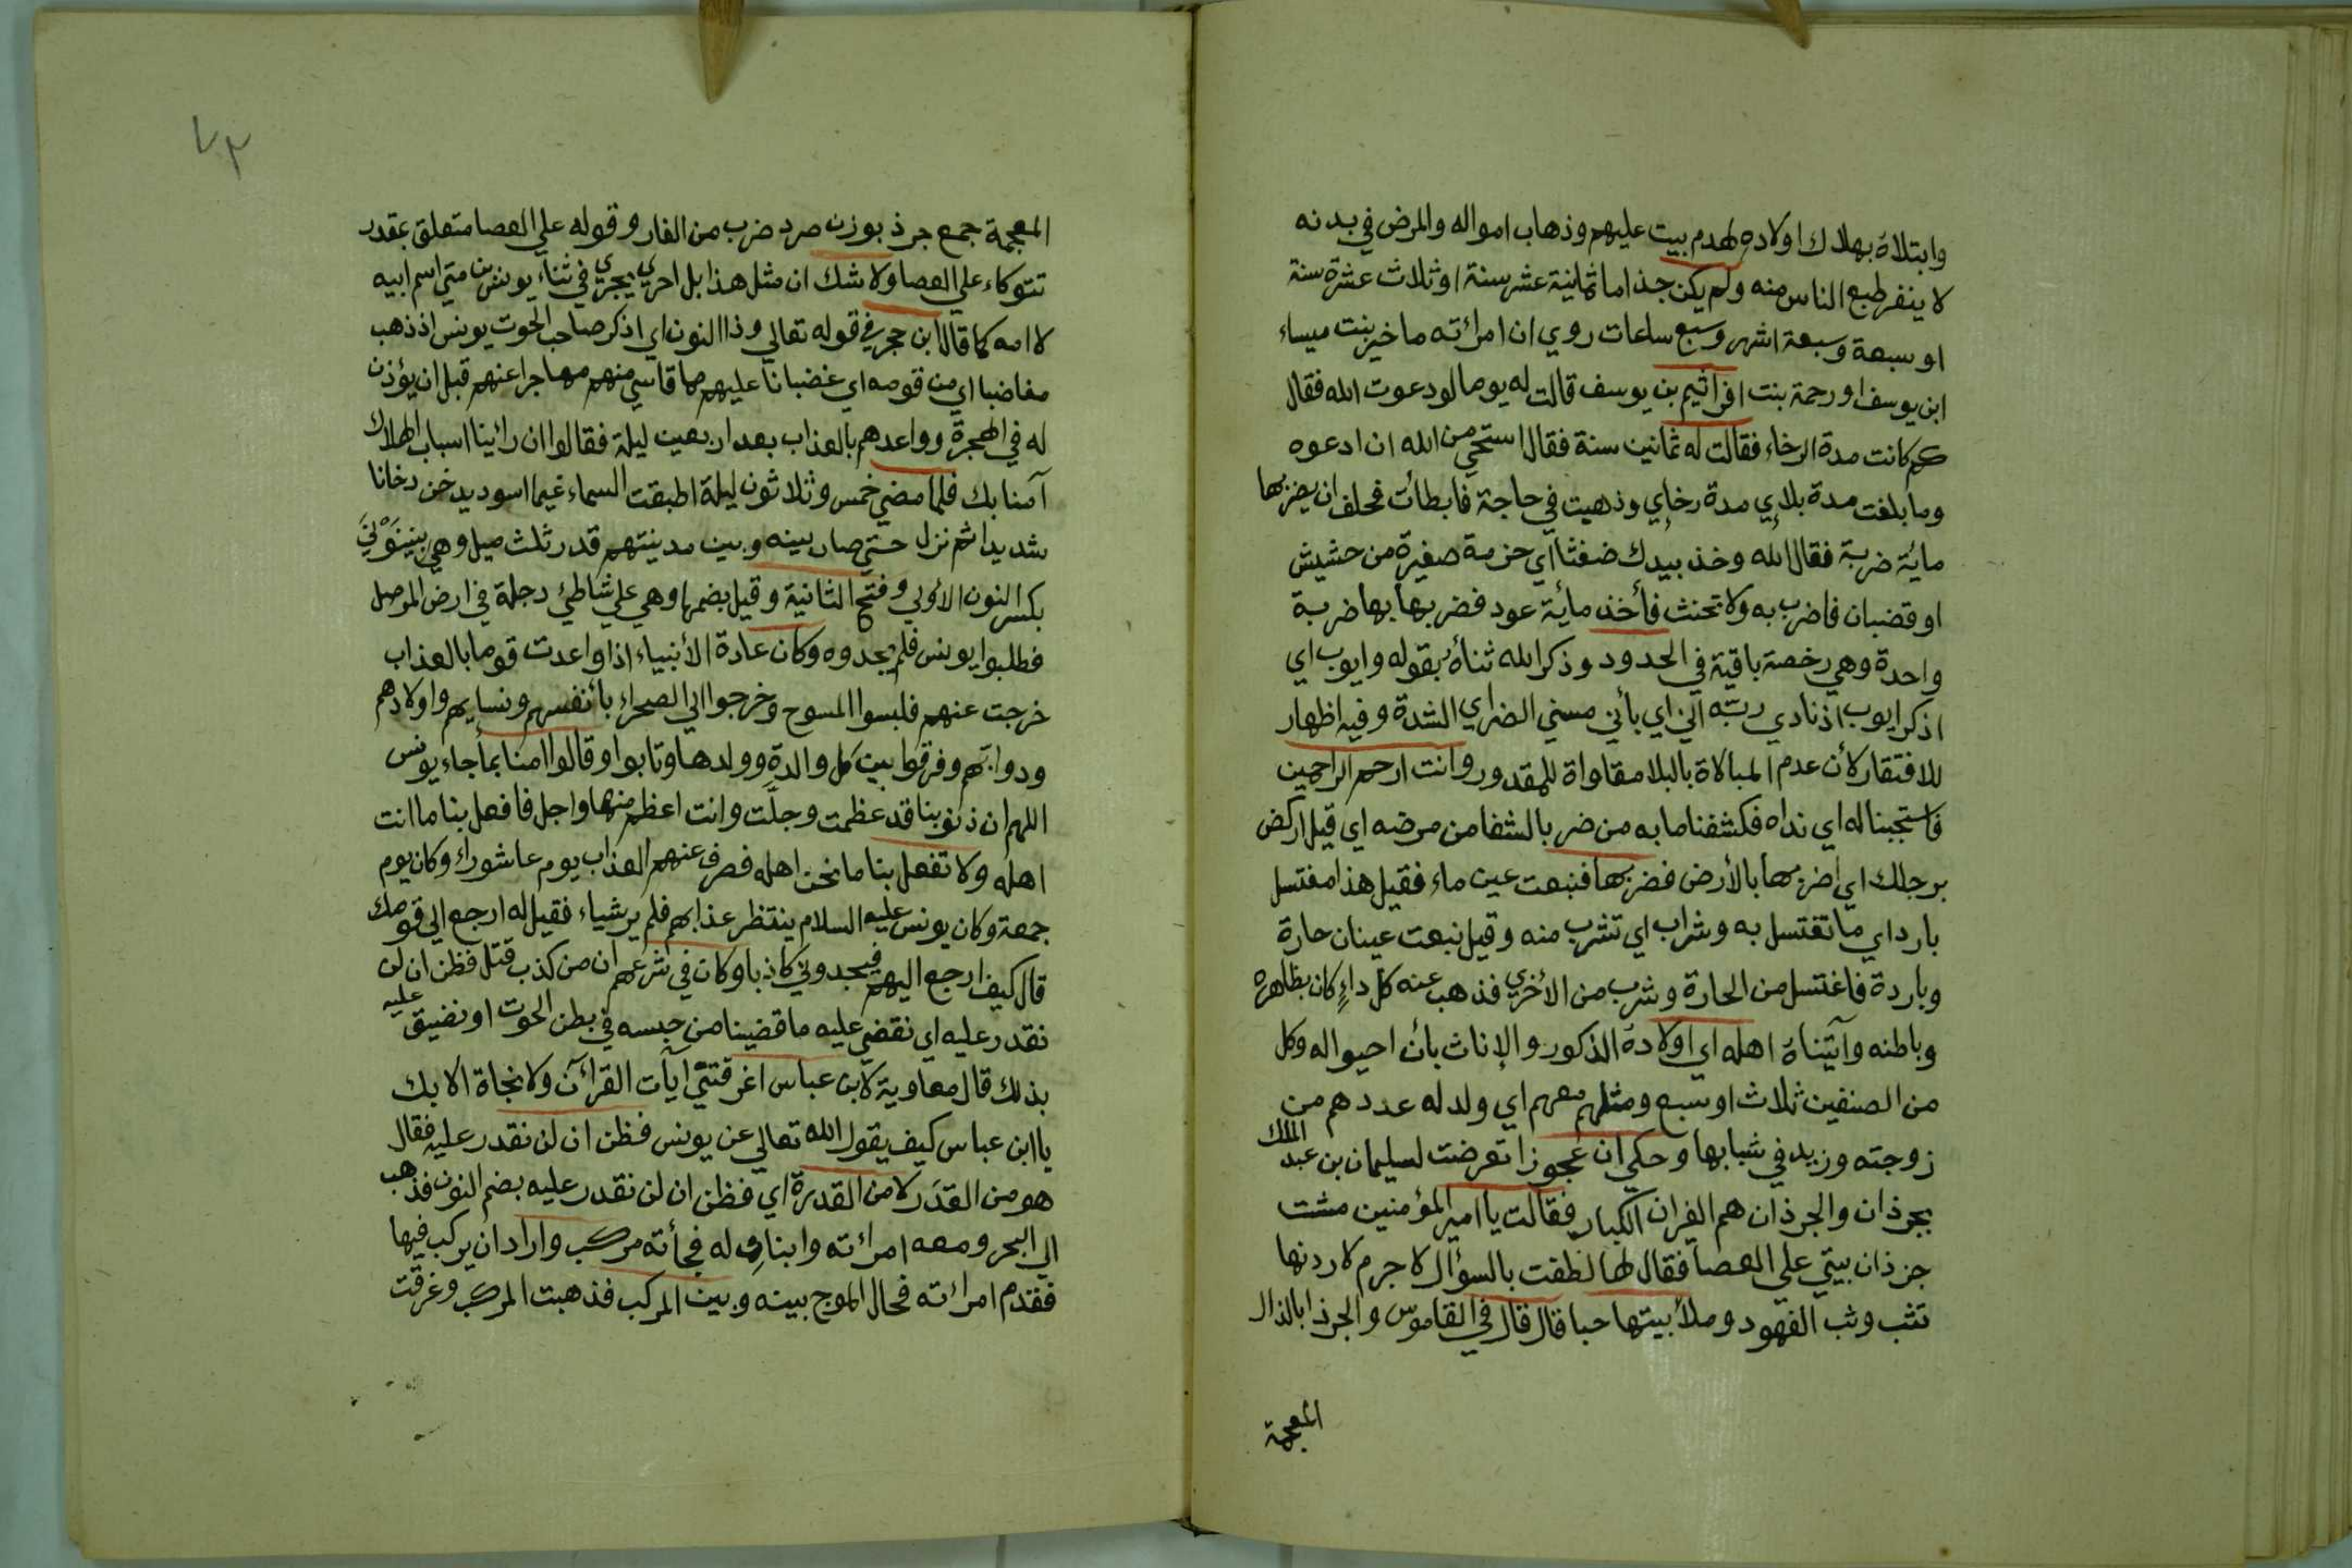 وابتلاه بهلاك اولاده لهدم بيت عليهم وذهاب امواله والمرض في بدنه
لا ينفر طبع الناس منه ولم يكن جذاما ثمانية عشر سنة او ثلاث عشرة سنة
او سبعة وسبعة اشهر وسبع ساعات روي ان امرائته ماخير بنت ميساء
ابن يوسف او رحمة بنت افراثيم بن يوسف قالت له يوما لو دعوت الله فقال
كم كانت مدة الرخاء فقالت له ثمانين سنة فقال استحي من الله ان ادعوه
وما بلغت مدة بلاي مدة رخاي وذهبت في حاجة فابطائت فحلف ان يضربها
مائة ضربة فقال الله وخذ بيدك ضغثا اي حزمة صغيرة من حشيش
او قضبان فاضرب به ولا تحنث فأخذ مائة عود فضربها بها ضربة
واحدة وهي رخصة باقية في الحدود وذكر الله ثناه بقوله وايوب اي
اذكر ايوب اذ نادي ربه اني اي بأني مسني الضر اي الشدة وفيه اظهار
للافتقار لأن عدم المبالاة بالبلا مقاواة للمقدور وانت ارحم الراحمين
فاستجبنا له اي نداه فكشفنا ما به من ضر بالشفا من مرضه اي قيل اركض
برجلك اي اضربها بالأرض فضربها فنبعت عين ماء فقيل هذا مغتسل
بارد اي ما تغتسل به وشراب اي تشرب منه وقيل نبعت عينان حارة
وباردة فاغتسل من الحارة وشرب من الأخري فذهب عنه كل داء كان بظاهره
وباطنه وآتيناه اهله اي اولاده الذكور والإناث بأن احيوا له وكل
من الصنفين ثلاث او سبع ومثلهم معهم اي ولد له عددهم من
زوجته وزيد في شبابها وحكي ان عجوزا تعرضت لسليمان بن عبد الملك
بجرذان والجرذان هم الفران الكبار فقالت يا امير المؤمنين مشت
جرذان بيتي علي العصا فقال لها لطفت بالسؤال لا جرم لاردنها
تثب وثب الفهود وملأ بيتها حبا قال قال في القاموس والجرذ ابالذال
المعجمة
٧٣
المعجمة جمع جرذ بوزن صرد ضرب من الفار وقوله علي العصا متعلق بمقدر
تتوكاء علي العصا ولا شك ان مثل هذا بل احري يجري في ثناء يونس بن متي اسم ابيه
لا امه كما قال ابن حجر في قوله تعالي وذا النون اي اذكر صاحب الحوت يونس اذ ذهب
مغاضبا اي من قومه اي غضبانا عليهم مما قاسي منهم مهاجرا عنهم قبل ان يؤذن
له في الهجرة وواعدهم بالعذاب بعد اربعين ليلة فقالوا ان رائينا اسباب الهلاك
آمنا بك فلما مضي خمس وثلاثون ليلة اطبقت السماء غيما اسود يدخن دخانا
شديدا ثم نزل حتي صار بينه وبين مدينتهم قدر ثلث ميل وهي بنينوي
بكسر النون الأولي وفتح الثانية وقيل بضمها وهي علي شاطئ دجلة في ارض الموصل
فطلبوا يونس فلم يجدوه وكان عادة الأنبياء اذا واعدت قوما بالعذاب
خرجت عنهم فلبسوا المسوح وخرجوا الي الصحراء بأنفسهم ونسايهم واولادهم
ودوابهم وفرقوا بين كل والدة وولدها وتابوا وقالوا امنا بما جاء يونس
اللهم ان ذنوبنا قد عظمت وجلت وانت اعظم منها واجل فافعل بنا ما انت
اهله ولا تفعل بنا ما نحن اهله فصرف عنهم العذاب يوم عاشوراء وكان يوم
جمعة وكان يونس عليه السلام ينتظر عذابهم فلم ير شياء فقيل له ارجع الي قومك
قال كيف ارجع اليهم فيجدوني كاذبا وكان في شرعهم ان من كذب قتل فظن ان لن
نقدر عليه اي نقضي عليه ما قضينا من حبسه في بطن الحوت او نضيق عليه
بذلك قال معاوية لابن عباس اغرقتني آيآت القرآن ولا نجاة الا بك
يا ابن عباس كيف يقول الله تعالي عن يونس فظن ان لن نقدر عليه فقال
هو من القدر لا من القدرة اي فظن ان لن نقدر عليه بضم النون فذهب
الي البحر ومعه امرائته وابنان له فجأته مركب واراد ان يركب فيها
فقدم امرائته فحال الموج بينه وبين المركب فذهبت المركب وغرقت